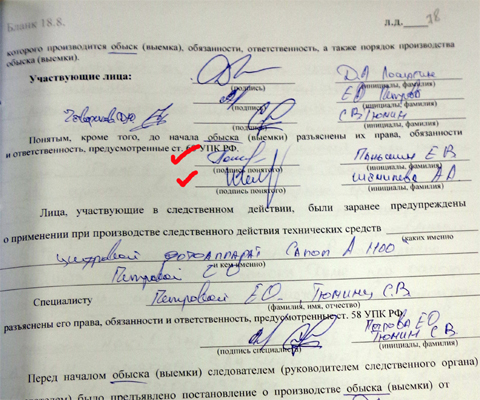 Бланк 18.8.
л.д. 78
которого производится обыск (выемка), обязанности, ответственность, а также порядок производства
обыска (выемки).
Участвующие лица:
(подпись) (инициалы, фамилия)
Е.О Петрова
(подпись) (инициалы, фамилия)
С.В. Тюмин
(подпись) (инициалы, фамилия)
Понятым, кроме того, до начала обыска (выемки) разъяснены их права, обязанности
и ответственность, предусмотренные ст. УПК РФ.
Е В
(подпись понятого) (инициалы, фамилия)
А.А.
(подпись понятого) (инициалы, фамилия)
Лица, участвующие в следственном действии, были заранее предупреждены
о применении при производстве следственного действия технических средств
(каких именно
цифровой фотоаппарат Canon A 1100
и кем именно)
Петровой
Специалисту Петровой Е.О., Тюмину С.В.
(фамилия, имя, отчество)
разъяснены его права, обязанности и ответственность, предусмотренные ст. 58 УПК РФ.
Петрова Е.О
Тюмин С.В.
(подпись специалиста) (инициалы, фамилия)
Перед началом обыска (выемки) следователем (руководителем следственного органа)
было предъявлено постановление о производстве обыска (выемки) от